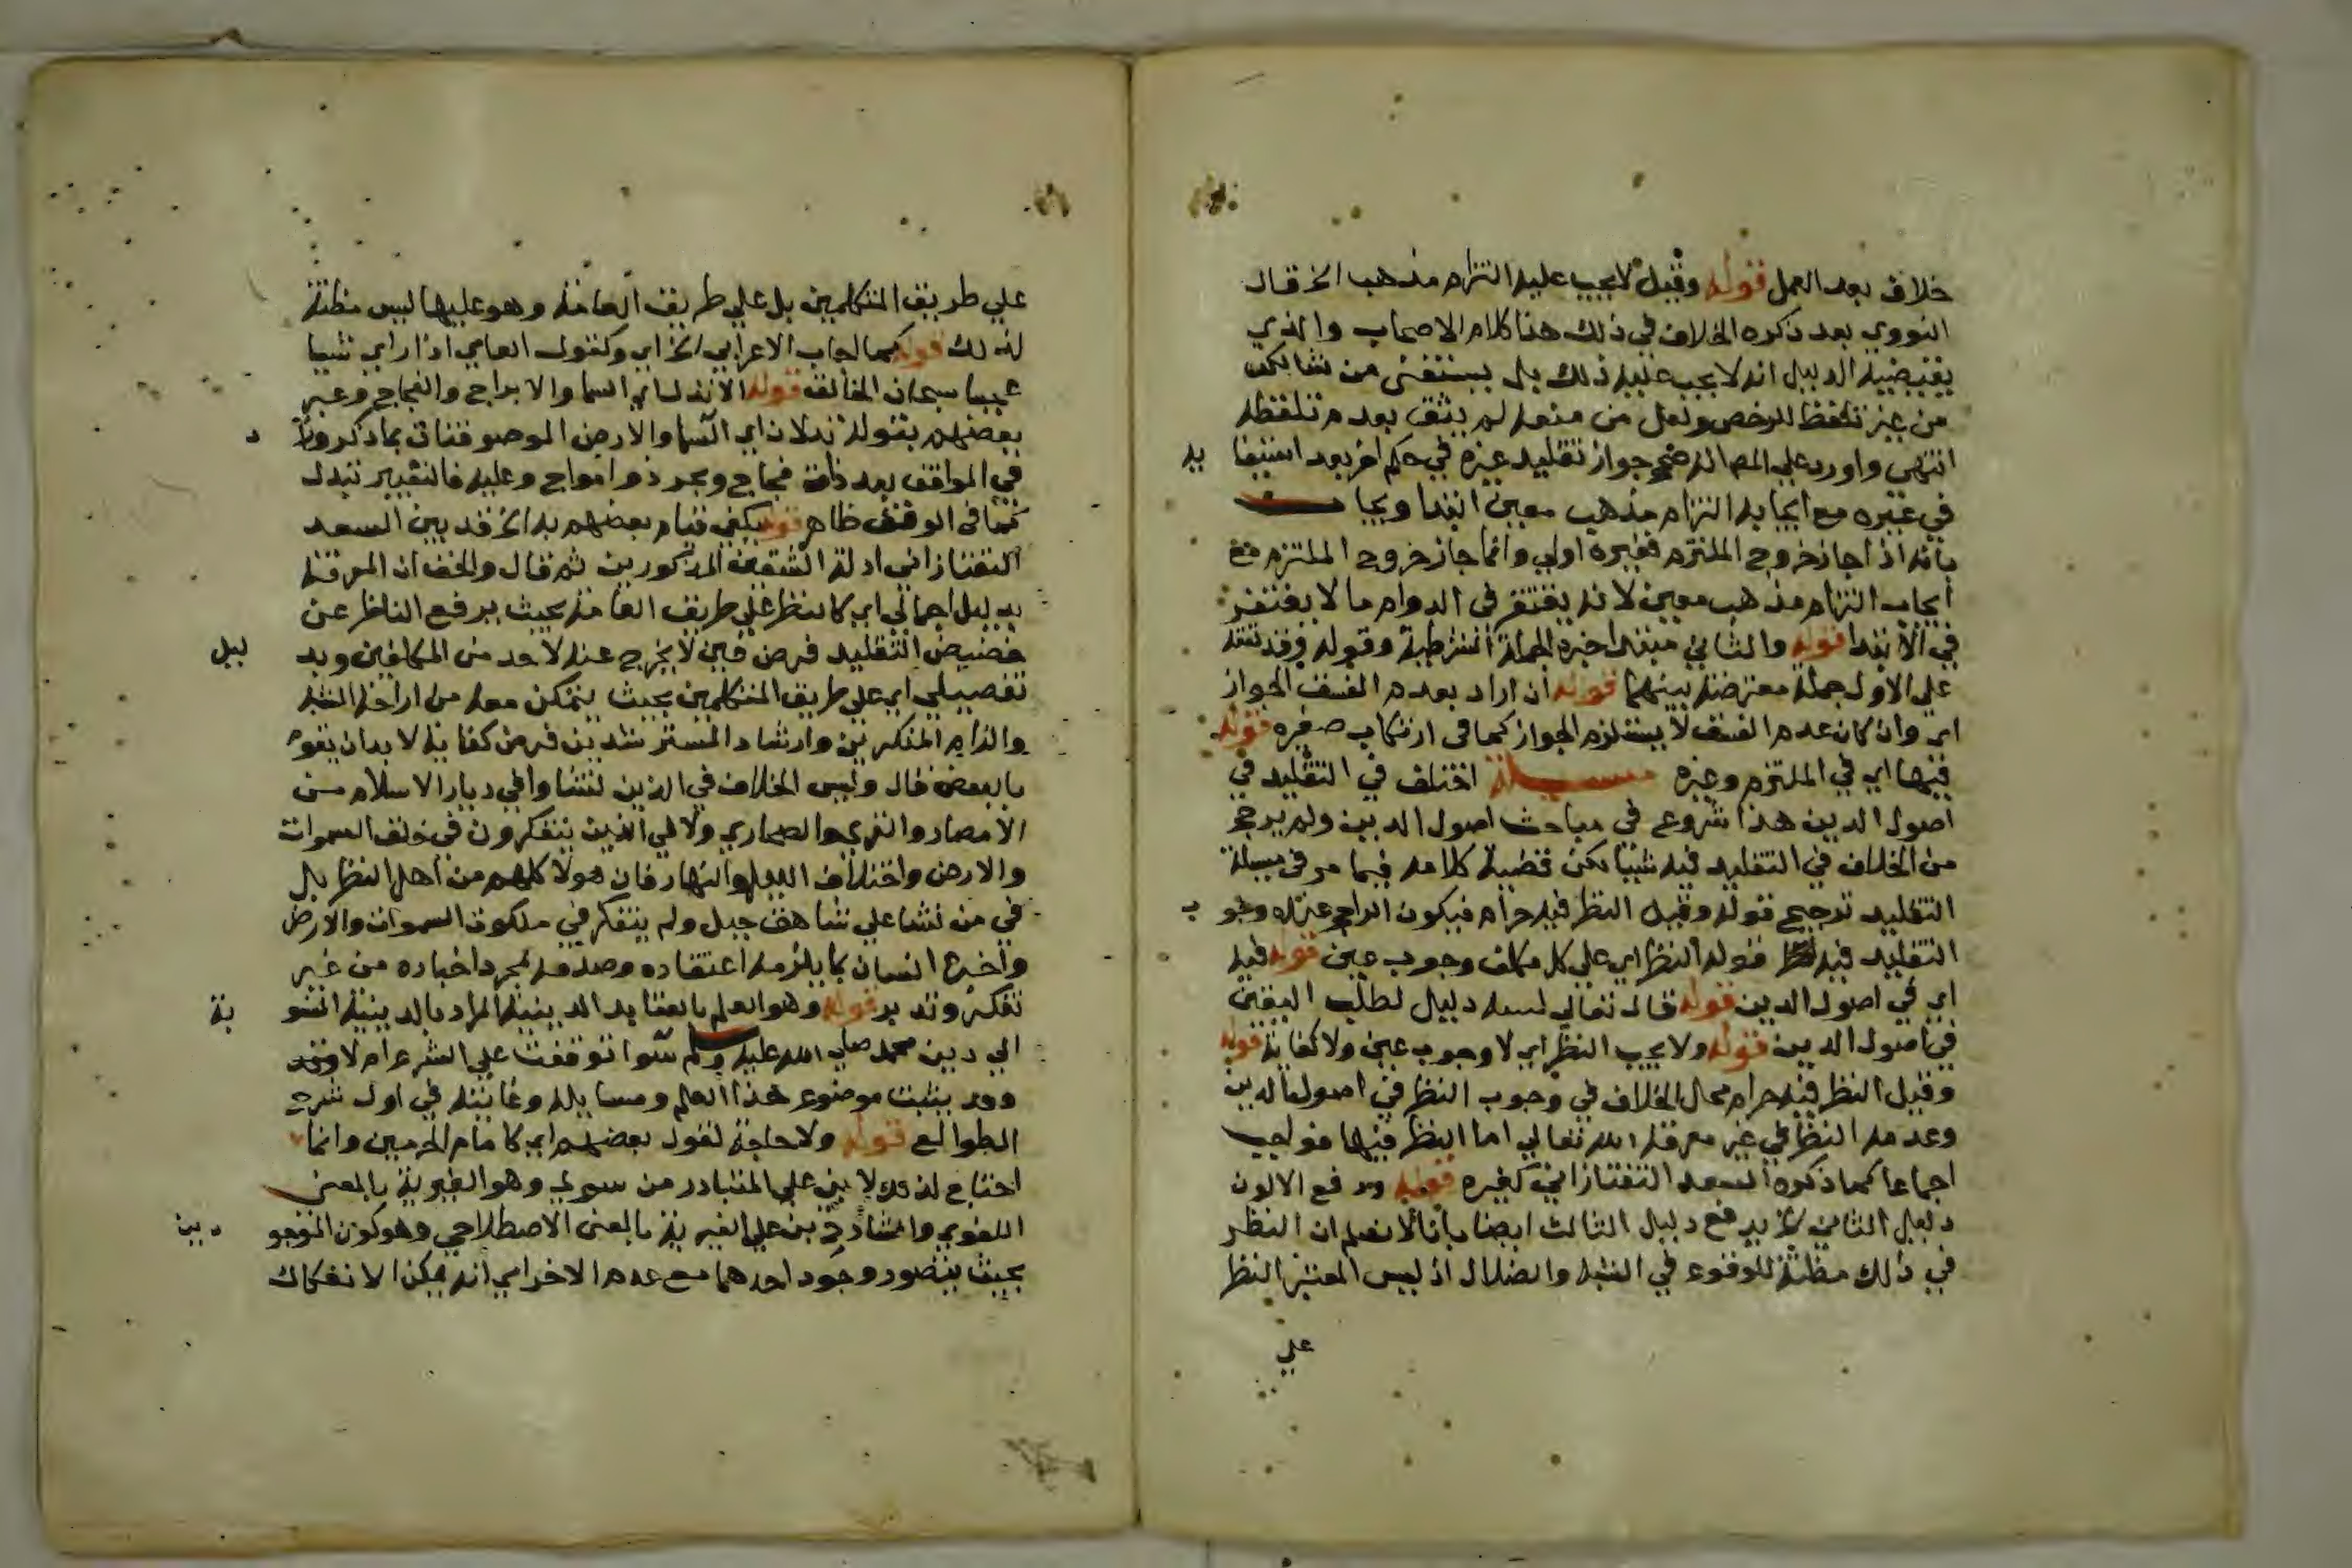 خلاف بعد العمل قوله وقيل لا يجب عليه التزام مذهب الخ قال
النووي بعد ذكره الخلاف في ذلك هذا كلام الاصحاب والذي
يقتضيه الدليل انه لا يجب عليه ذلك بل يستفتى من شا لكن
من غير تلقط للرخص ولعل من منعه لم يثق بعدم تلقطه
انتهى واورد علي المص انه صحح جواز تقليد غيره في حكم اخر بعد استيفا يه
في غيره مع ايجابه التزام مذهب معين ابتدا ويجاب
بانه اذا جاز خروج الملتزم فغيره اولي وانما جاز خروج الملتزم مع
ايجاب التزام مذهب معين لانه يغتفر في الدوام ما لا يغتفر
في الابتدا قوله والثاني مبتدا خبره الجملة الشرطية وقوله وقد تفقه
علي الاول جملة معترضة بينهما قوله ان اراد بعدم الفسق الجواز
اي وان كان عدم الفسق لا يستلزم الجواز كما في ارتكاب صغيره قوله
فيهما اي في الملتزم وغيره مسيلة اختلف في التقليد في
اصول الدين هذا شروع في مباحث اصول الدين ولم يرجح
من الخلاف في التقليد فيه شيئا لكن قضية كلامه فيما مر في مسيلة
التقليد ترجيح قوله وقيل النظر فيه حرام فيكون الراجح عنده وجو ب
التقليد فيه قوله النظر اي علي كل مكلف وجوب عين قوله فيه
اي في اصول الدين قوله قال تعالي لنبيه دليل لطلب اليقين
في اصول الدين قوله ولا يجب النظر اي لا وجوب عين ولا كفاية قوله
وقيل النظر فيه حرام محل الخلاف في وجوب النظر في اصول الدين
وعدمه النظر في غير معرفة الله تعالي اما النظر فيها فواجب
اجماعا كما ذكره السعد التفتازاني كغيره قوله ودفع الاولون
دليل الثاني الخ يدفع دليل الثالث ايضا بانا لا نعلم ان النظر
في ذلك مظنة للوقوع في الشبه والضلال اذ ليس المعتبر النظر
علي
علي طريق المتكلمين بل علي طريق العامة وهو عليها ليس مظنة
لذلك قوله كما اجاب الاعرابي الخ اي وكقول العامي اذا راي شيا
عجيبا سبحان الخالق قوله الا تدل اي السما والابراج والفجاج وعبر
بعضهم بقوله تدلان اي السما والارض الموصوفتان بما ذكر وزا د
في المواقف بعد ذات فجاج وبحر ذو امواج وعليه فالتغيير تبدل
كما في الوقف ظاهر قوله يكفي قيام بعضهم به الخ قد بين السعد
التفتازاني ادلة الشقين المذكورين ثم قال والحق ان المعرفة
بدليل اجمالي اي كالنظر علي طريق العامة بحيث يرفع الناظر عن
حضيض التقليد فرض عين لا يخرج عنه لاحد من المكلفين وبد ليل
تفصيلي اي علي طريق المتكلمين بحيث يتمكن معه من ازاحة الشبه
والزام المنكرين وارشاد المسترشدين فرض كفاية لا بد ان يقوم
بالبعض قال وليس الخلاف في الذين نشاوا في ديار الاسلام من
الامصار والقرى والصحاري ولا في الذين يتفكرون في خلق السموات
والارض واختلاف الليل والنهار فان هولا كلهم من اهل النظر بل
في من نشا علي شاهق جبل ولم يتفكر في ملكوت السموات والارض
واخبره انسان بما يلزمه اعتقاده وصدقه بمجرد اخباره من غير
تفكر وتدبر قوله وهو العلم بالعقايد الدينية المراد بالدينية المنسو بة
الي دين محمد صلي الله عليه وسلم سوا توقفت علي الشرع ام لا وقد
وقد بينت موضوع هذا العلم ومسايله وغايته في اول شرح
الطوالع قوله ولا حاجة لقول بعضهم اي كامام الحرمين وانما
احتاج لذلك لا بني علي المتبادر من سوي وهو الغيرية بالمعنى
اللغوي والشارح بني علي الغيرية بالمعنى الاصطلاحي وهو كون الموجو دين
بحيث يتصور وجود احدهما مع عدم الاخر اي انه يمكن الانفكاك